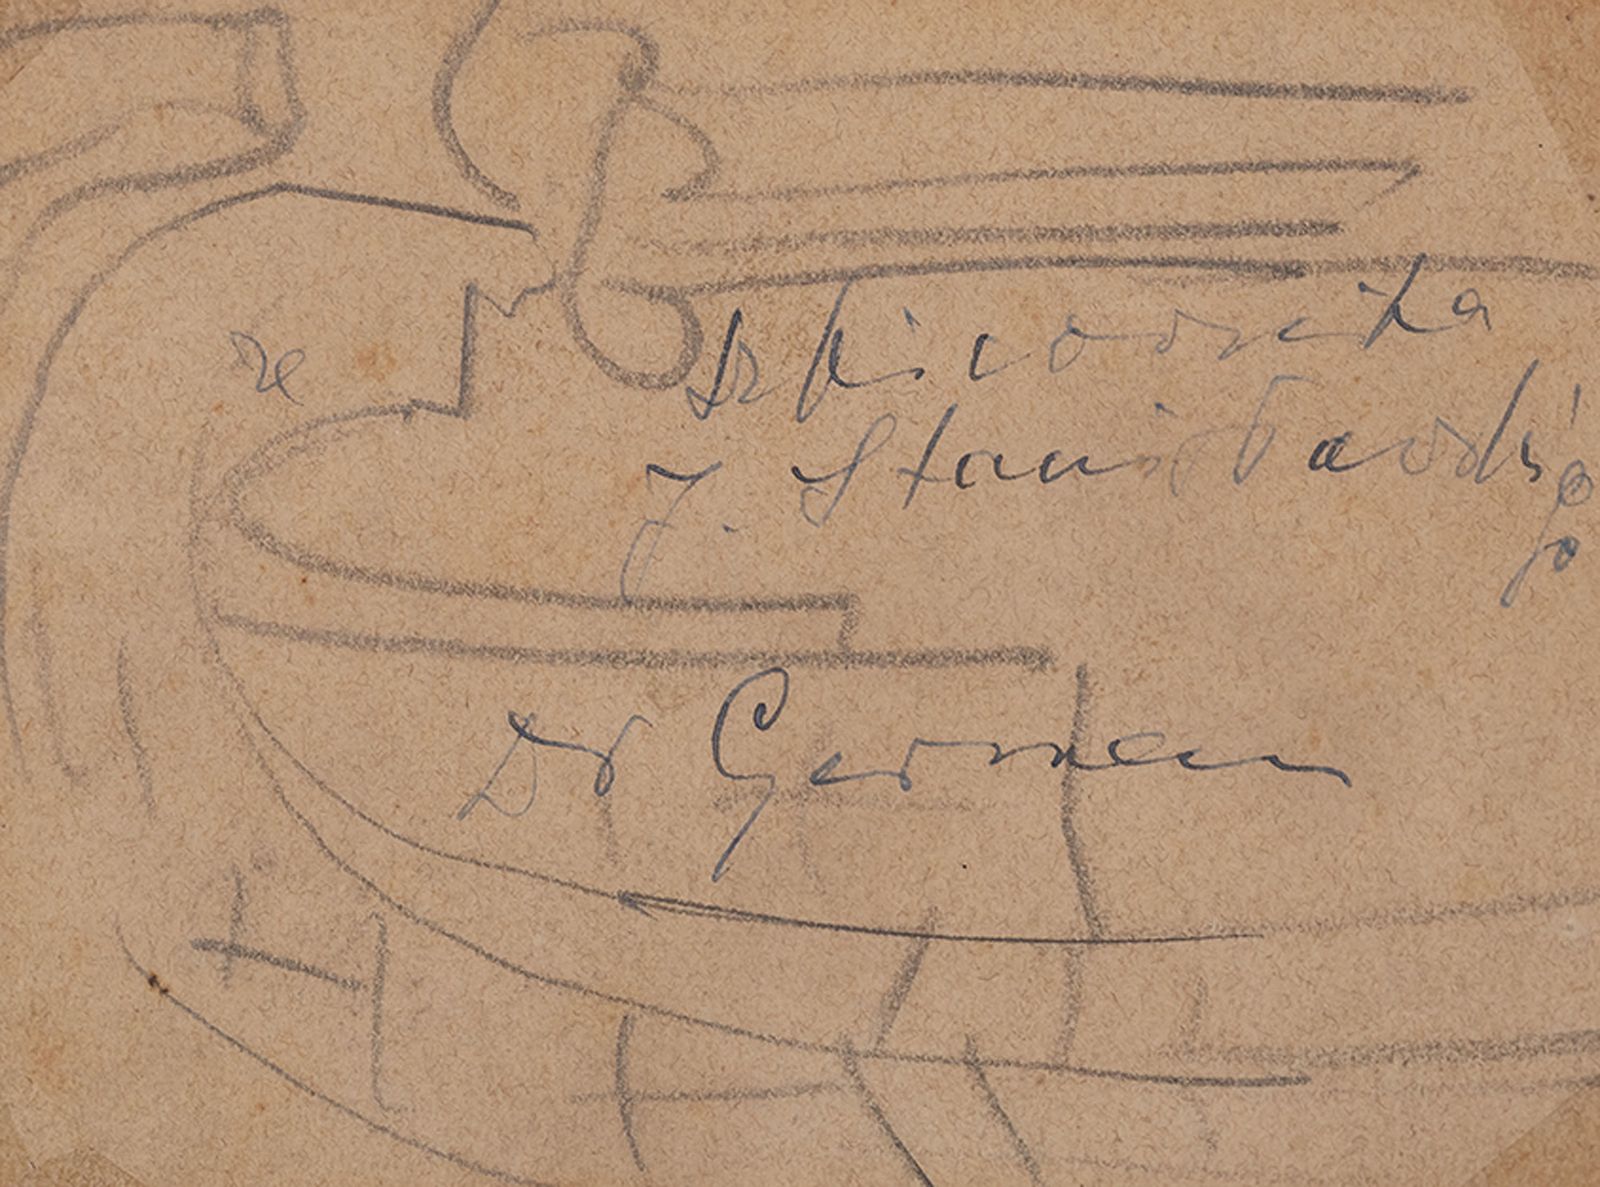 ze szkicownika
J. Stanisławskiego
Dr German